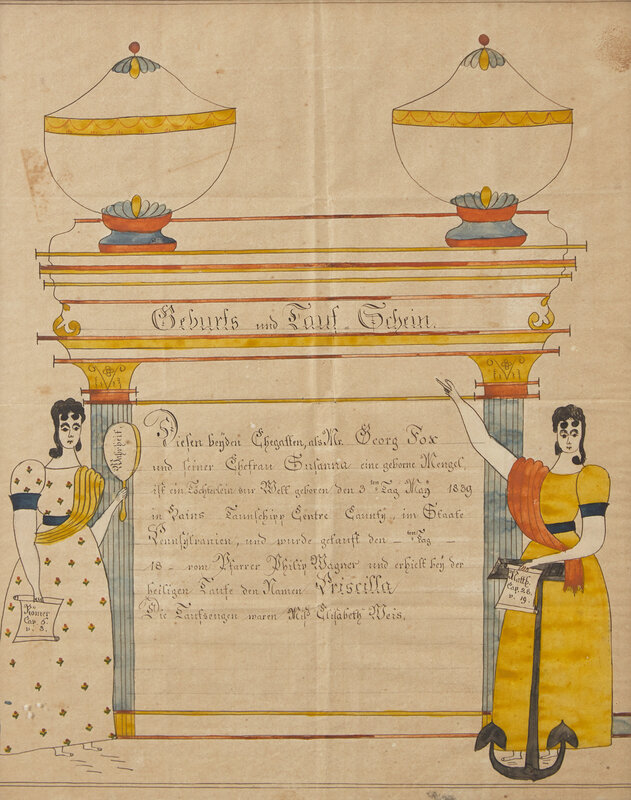 Geburts und Tauf Schein.
Diesen beyden Ehegatten, als Mr. Georg Fox
und seiner Ehefrau Susanna eine geborne Mengel,
ist ein Töchterlein zur Welt geboren den 3ten Tag May 1839
in Hains Taunschipp Centre County, im Staate
Pennsylvanien, und wurde getauft den - ten Tag -
18 - vom Pfarrer Philip Wagner und erhielt bey der
heiligen Taufe den Namen Priscilla
Die Taufzeugen waren Miß Elisabeth Weis,
Wahrheit.
Römer
Cap. 5.
v. 3.
Matth.
Cap. 28.
v. 19.